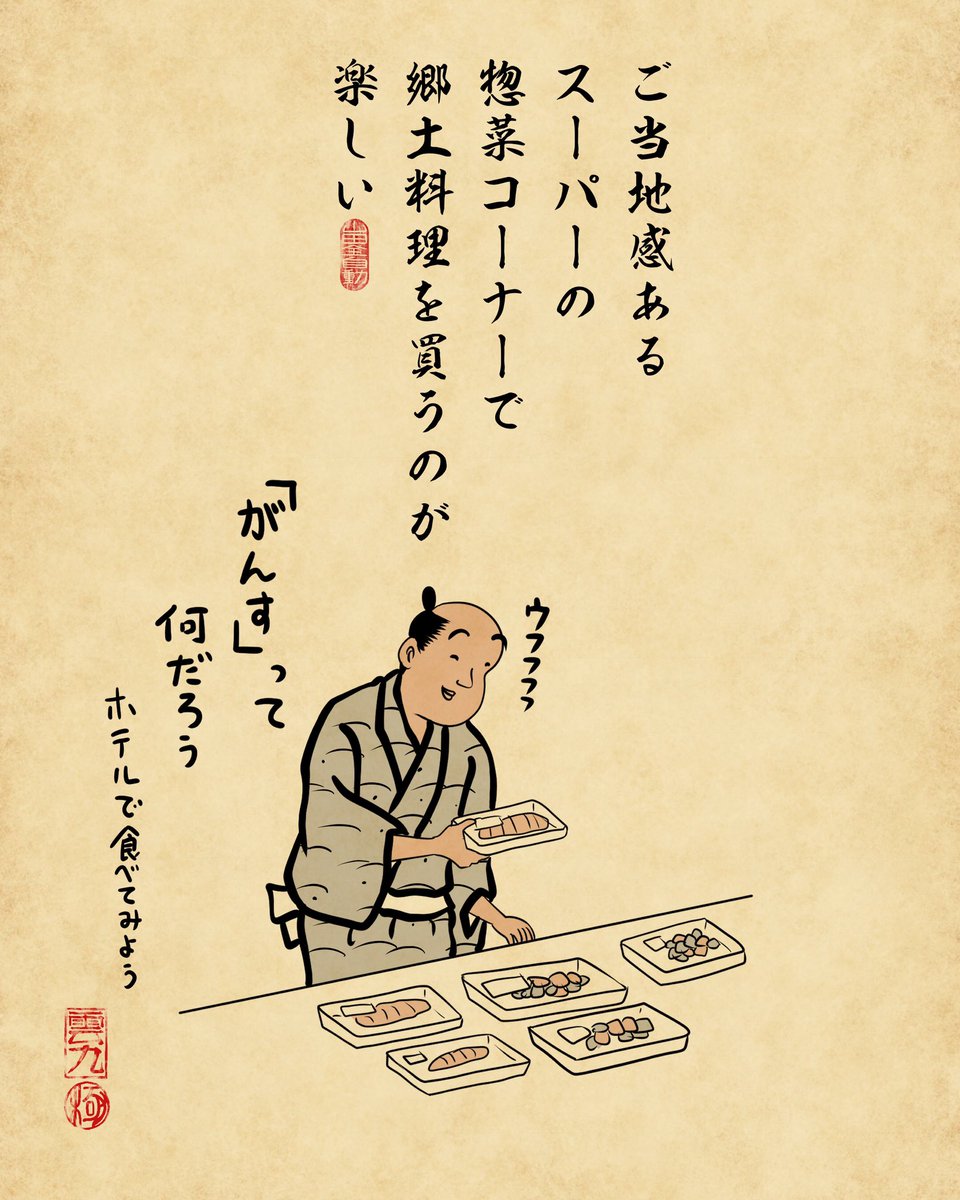 ご当地感ある
スーパーの
惣菜コーナーで
郷土料理を買うのが
楽しい
ウフフフッ
「がんす」って
何だろう
ホテルで食べてみよう